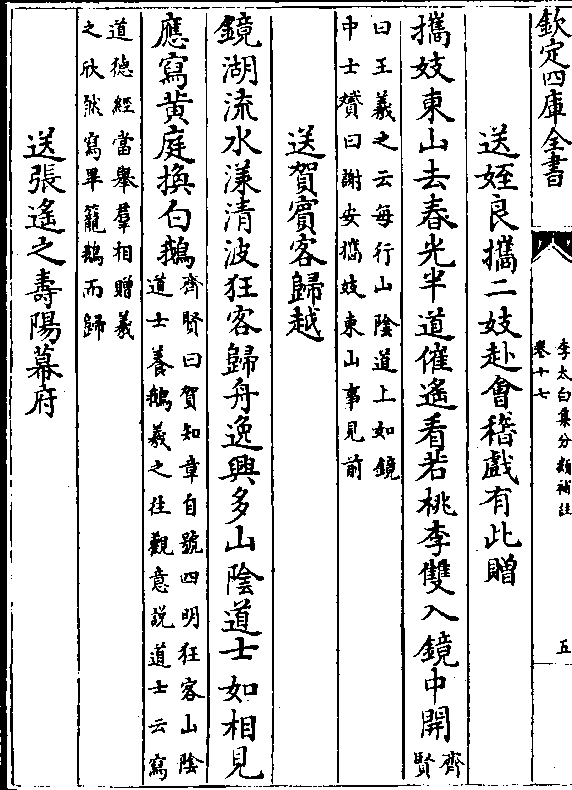 欽定四庫全書
李太白集分類補註
卷十七
五
送姪良攜二妓赴會稽戲有此贈
攜妓東山去春光半道催遙看若桃李雙入鏡中開齊
賢
曰王羲之云每行山陰道上如鏡
中士贇曰謝安攜妓東山事見前
送賀賓客歸越
鏡湖流水漾清波狂客歸舟逸興多山陰道士如相見
應寫黃庭換白鵝齊賢曰賀知章自號四明狂客山陰
道士養鵝羲之往觀意説道士云寫
道德經當舉羣相贈羲
之欣然寫畢籠鵝而歸
送張遙之壽陽幕府